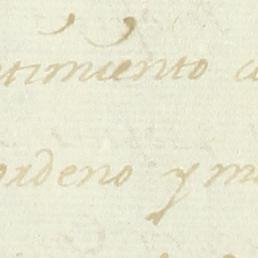 timiento
ordeno y m